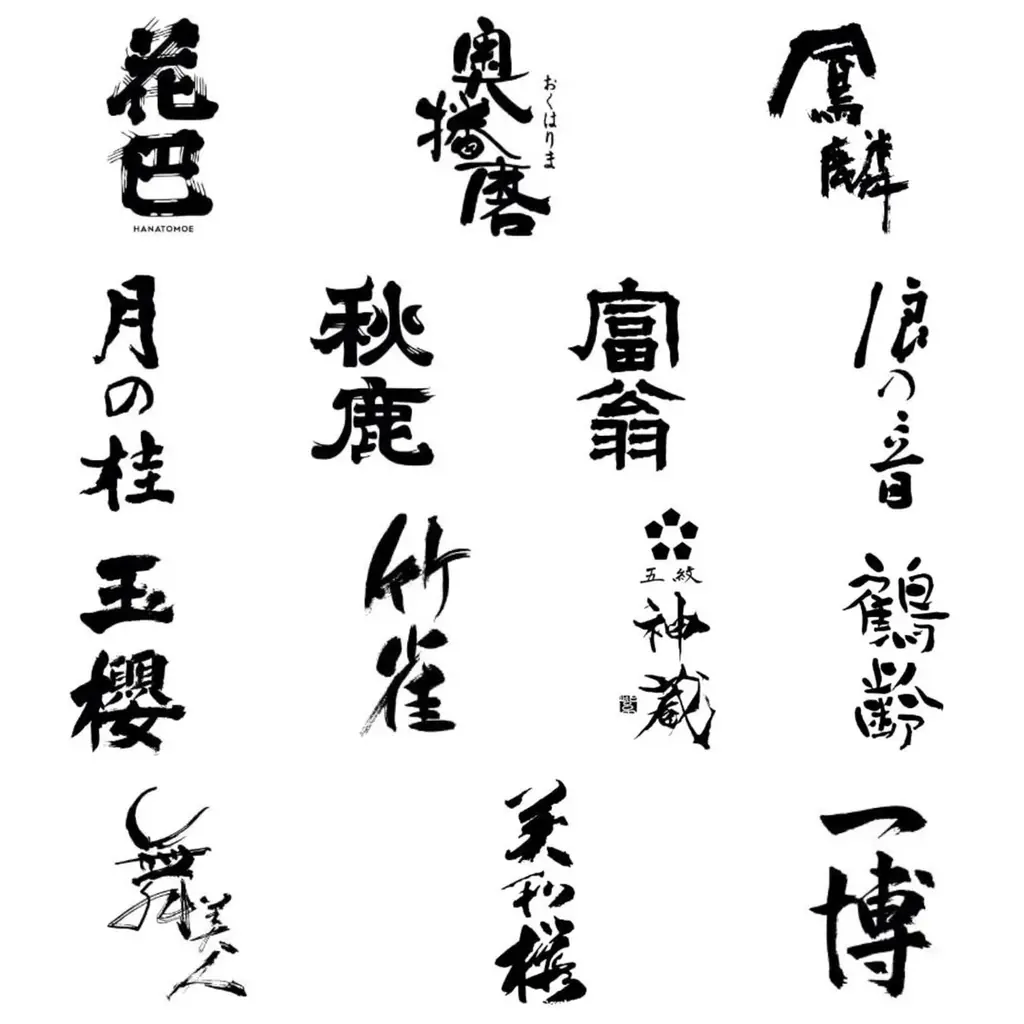 花巴
HANATOMOE
奥播磨
おくはりま
鳳麟
月の桂
秋鹿
富翁
浪の音
玉櫻
竹雀
五紋
神蔵
鶴齢
舞美人
美和桜
一博